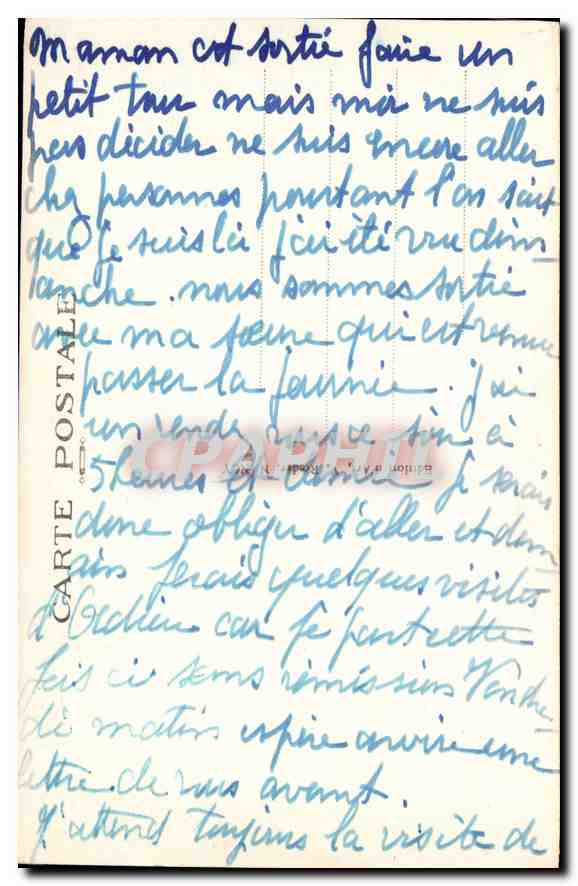 Maman est sortié faire un
petit tour mais moi ne suis
pas décider ne suis encore aller
chez personnes pourtant l'on sait
que je suis là j'ai été vu dim
anche. nous sommes sortie
avec ma sœure qui est venue
passer la journée. j'ai
un rendez vous ce soir à
5 heures et demie je serais
donc obliger d'aller et dem
ains ferais quelques visites
d'Adieu car je part cette
fois ci sans rémission Vendre-
di matin espère avoire une
lettre de vous avant.
J'attend toujours la visite de
CARTE POSTALE
CPAPHIL